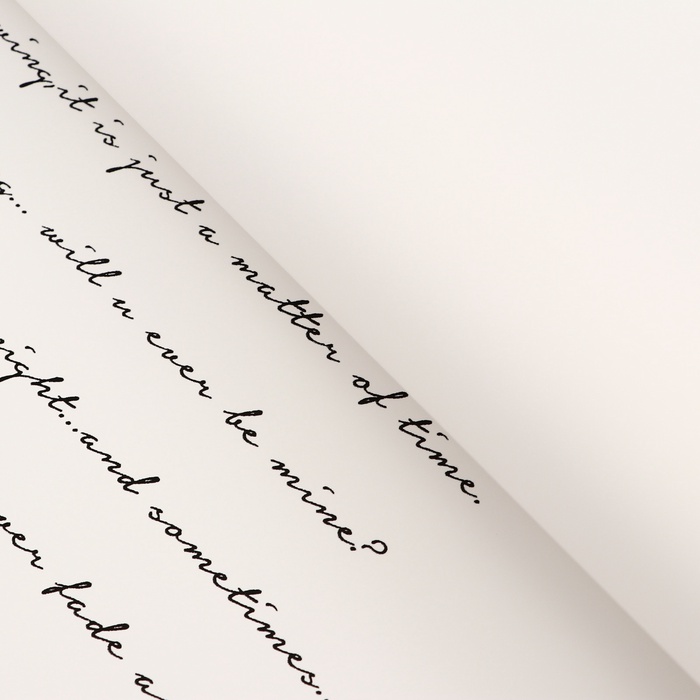 it is just a matter of time.
will u ever be mine?
and sometimes.
fade a